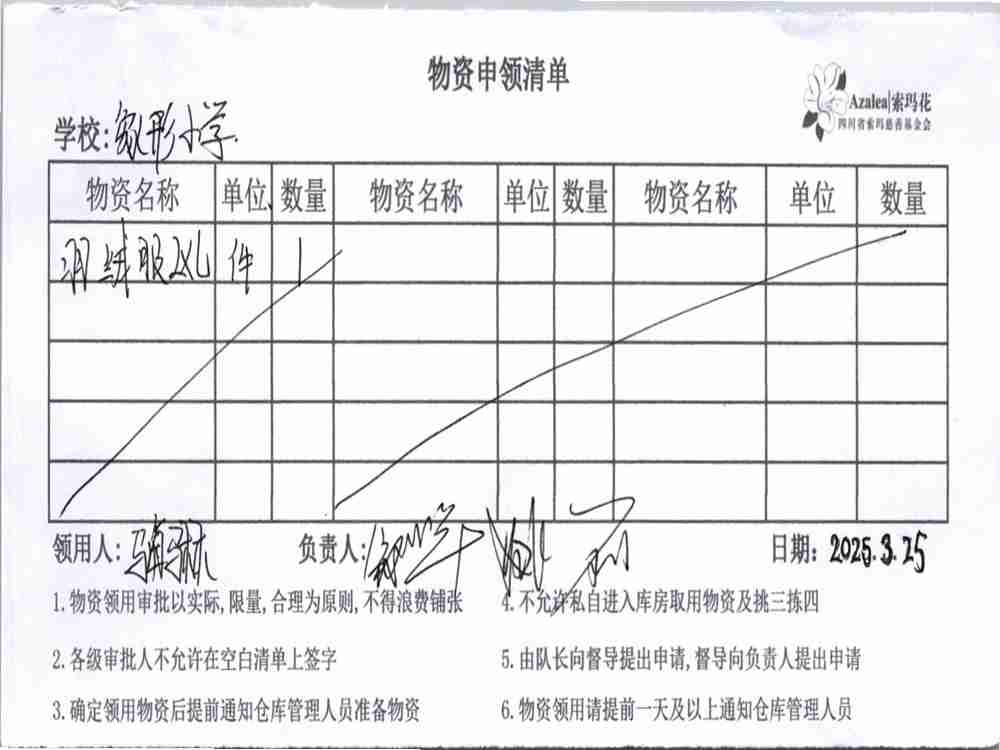 物资申领清单
Azalea|索玛花
四川省索玛慈善基金会
学校:象形小学.
物资名称 单位 数量 物资名称 单位 数量 物资名称 单位 数量
羽绒服2XL 件 1
领用人: 负责人: 日期: 2025.3.25
1.物资领用审批以实际,限量,合理为原则,不得浪费铺张
4.不允许私自进入库房取用物资及挑三拣四
2.各级审批人不允许在空白清单上签字
5.由队长向督导提出申请,督导向负责人提出申请
3.确定领用物资后提前通知仓库管理人员准备物资
6.物资领用请提前一天及以上通知仓库管理人员